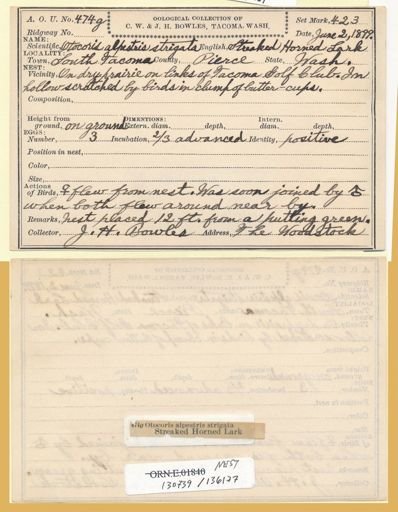 A. O. U. No. 474g
OOLOGICAL COLLECTION OF
C. W. & J. H. BOWLES, TACOMA, WASH.
Set Mark, 423
Ridgway No.
Date, June 2, 1899.
NAME:
Scientific, Otocoris alpestris strigata English, Streaked Horned Lark
LOCALITY:
Town, South Tacoma County, Pierce State, Wash.
NEST:
Vicinity, On dry prairie on links of Tacoma Golf Club. In
hollow scratched by birds in clump of butter-cups.
Composition,
Height from
ground, on ground
DIMENSIONS:
Extern. diam. depth, Intern. diam. depth,
EGGS:
Number, 3 Incubation, 2/3 advanced Identity, positive
Position in nest,
Color,
Size,
Actions
of Birds, ♀ flew from nest. Was soon joined by ♂
when both flew around near by.
Remarks, Nest placed 12 ft. from a putting green.
Collector, J. H. Bowles Address, The Woodstock
474g Otocoris alpestris strigata
Streaked Horned Lark
ORN.E.01840
130739 / 136127